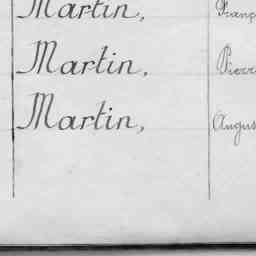 Martin, Franç
Martin, Pierre
Martin, Augus